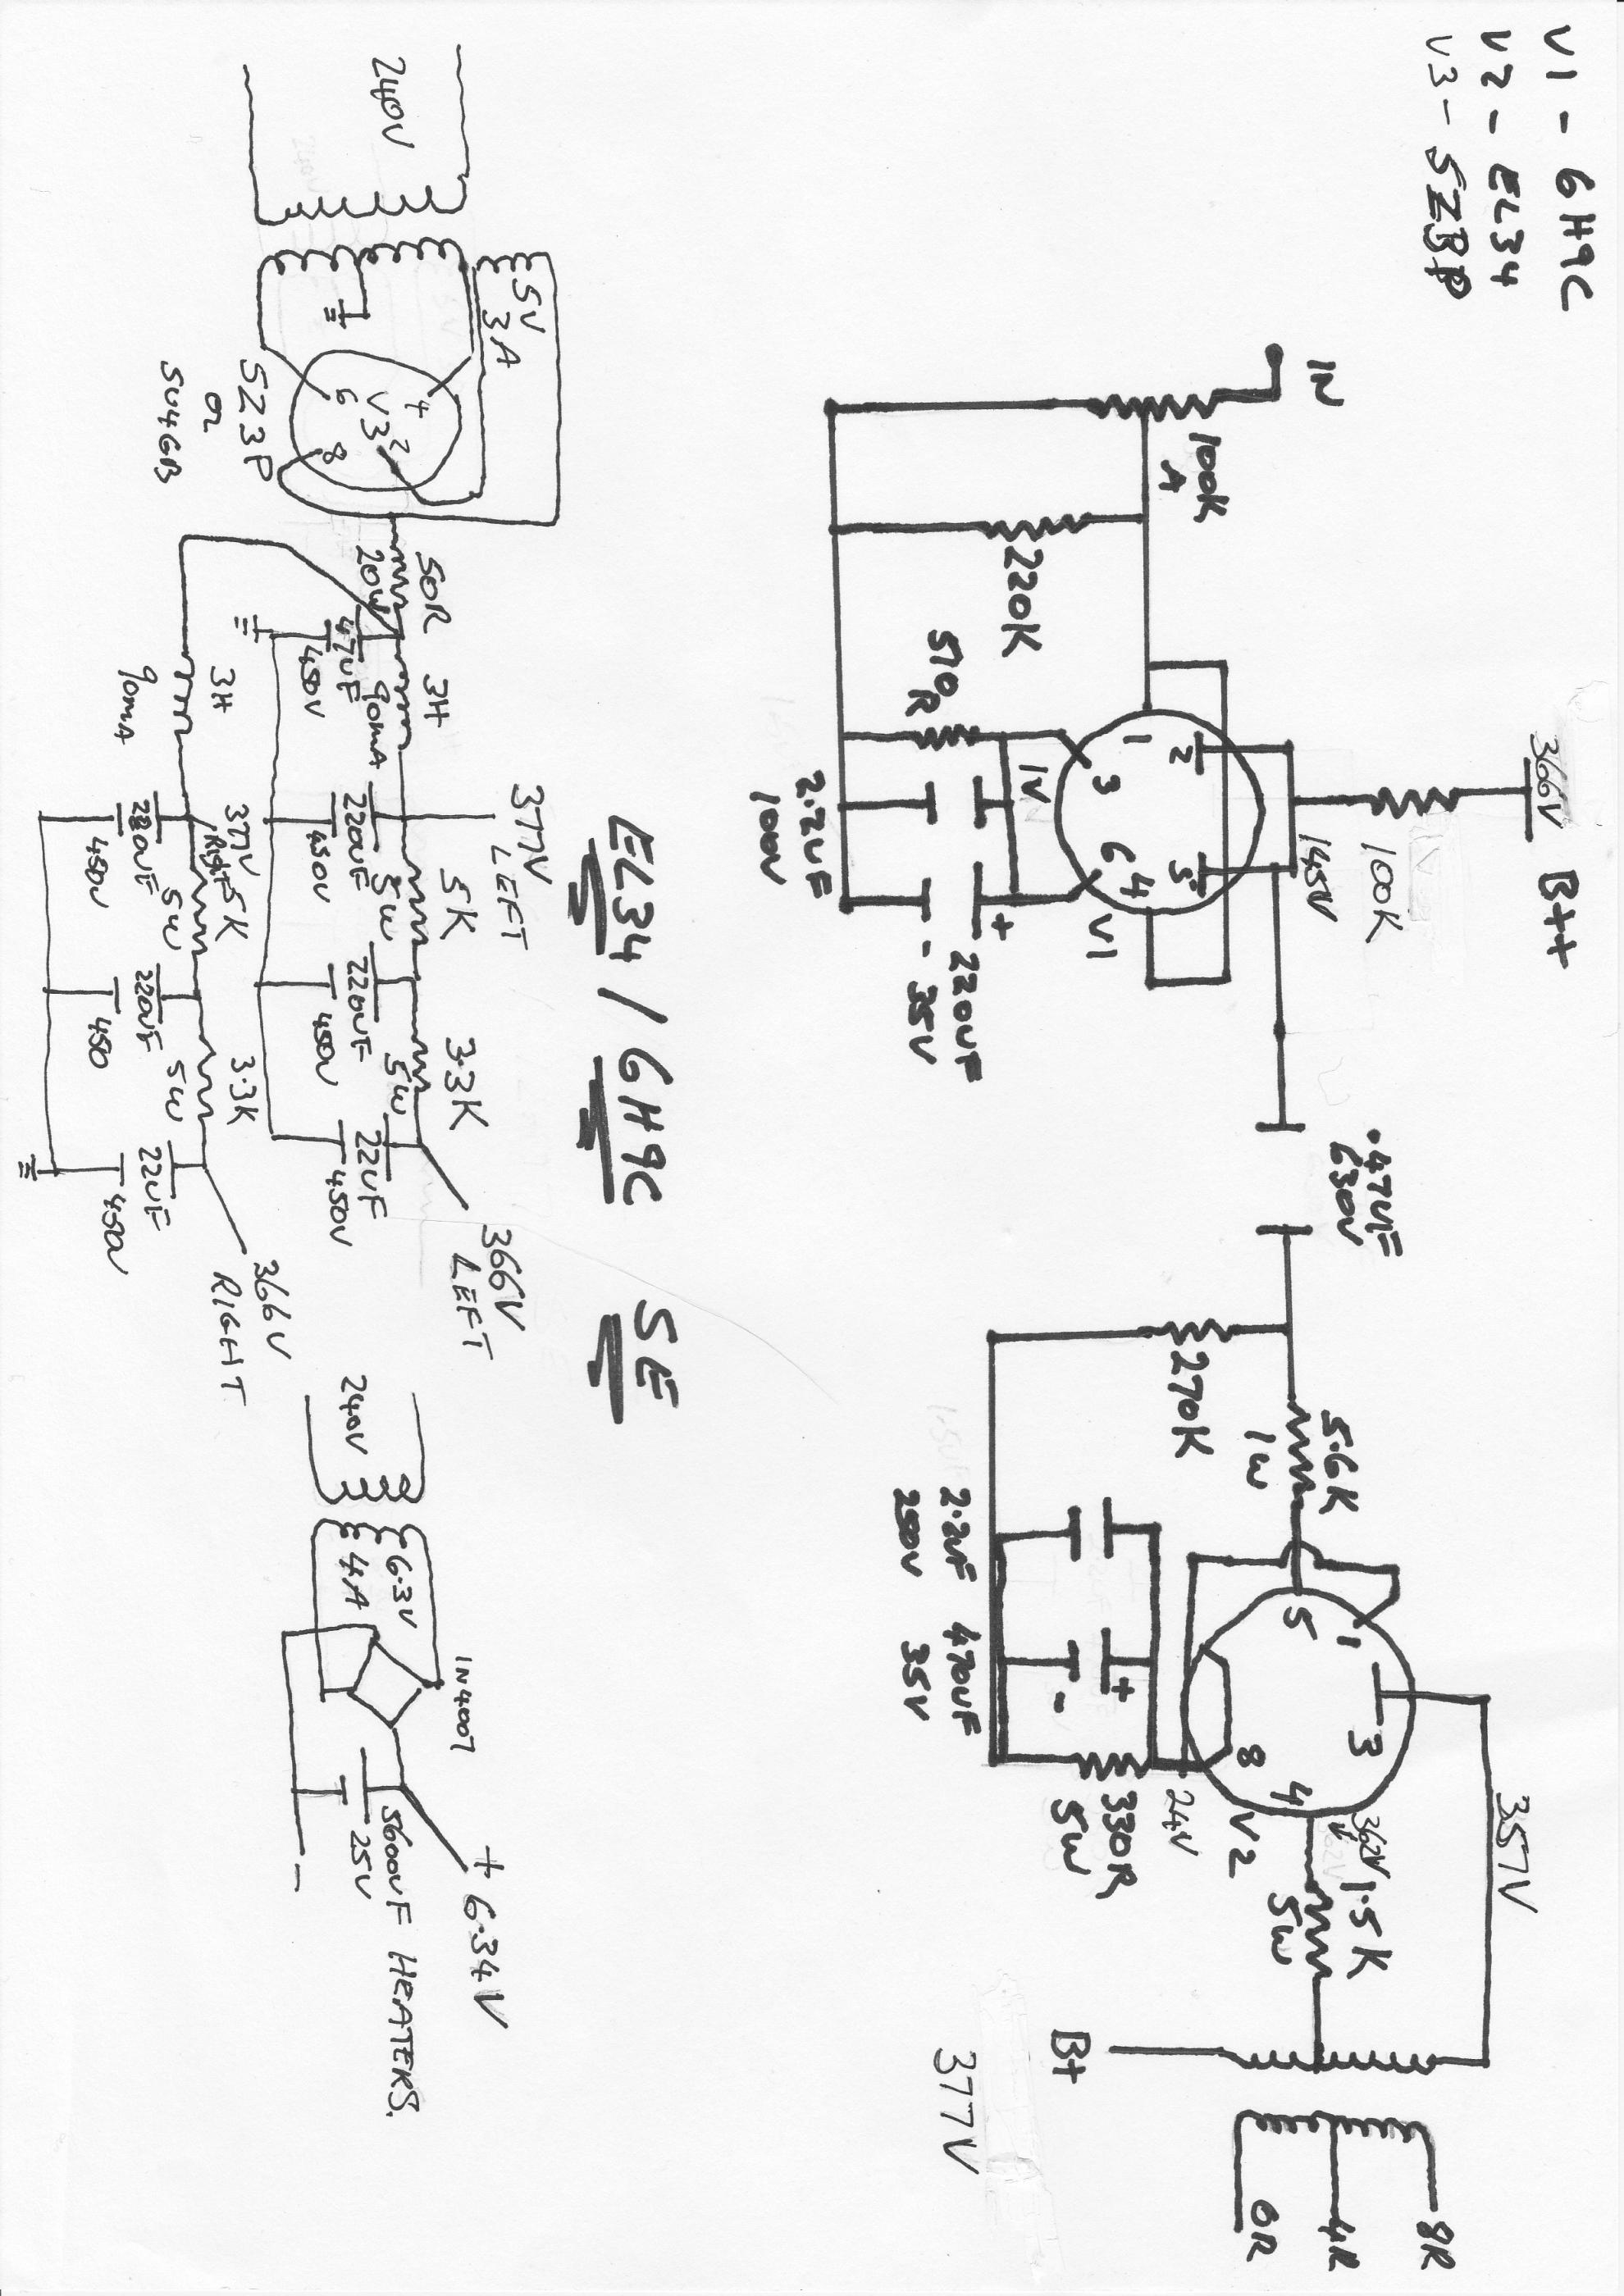 V1 - 6H9C
V2 - EL34
V3 - 5Z3P
IN
100K
A
220K
510R
1V
2.2UF
100V
220UF
35V
+
-
1
2
3
6
4
5
V1
366V
B++
100K
145V
.47UF
630V
270K
5.6K
1W
2.2UF
250V
470UF
35V
+
-
330R
5W
24V
5
1
3
8
4
V2
362V
1.5K
5W
357V
B+
377V
8R
4R
0R
EL34 / 6H9C SE
240V
5V
3A
4
6
V3
2
8
5Z3P
OR
5U4GB
50R
20W
47UF
450V
3H
90mA
377V
LEFT
220UF
450V
5K
5W
220UF
450V
3.3K
5W
22UF
450V
366V
LEFT
3H
90mA
377V
Right
220UF
450V
5K
5W
220UF
450
3.3K
5W
22UF
450V
366V
RIGHT
240V
6.3V
4A
1N4007
5600UF
25V
+ 6.34V
-
HEATERS.